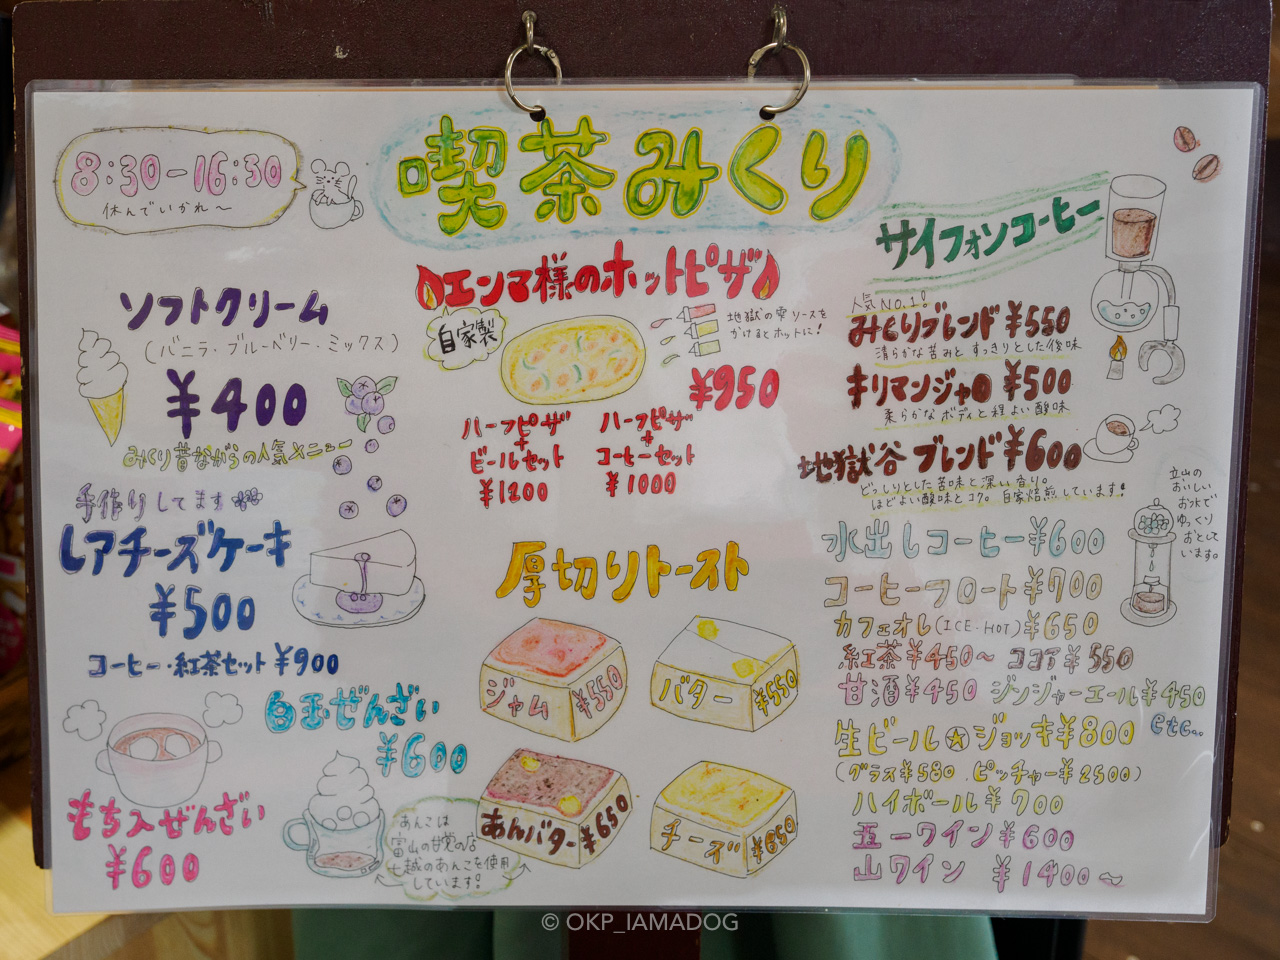 8:30-16:30
休んでいかれ〜
喫茶みくり
ソフトクリーム
(バニラ・ブルーベリー・ミックス)
¥400
みくり昔ながらの人気メニュー
手作りしてます
レアチーズケーキ
¥500
コーヒー・紅茶セット ¥900
白玉ぜんざい
¥600
もち入ぜんざい
¥600
あんこは
富山の甘党の店
七越のあんこを使用
しています!
エンマ様のホットピザ
自家製
地獄の雫ソースを
かけるとホットに!
¥950
ハーフピザ
+
ビールセット
¥1200
ハーフピザ
+
コーヒーセット
¥1000
厚切りトースト
ジャム ¥550
バター ¥550
あんバター ¥650
チーズ ¥650
サイフォンコーヒー
人気NO.1!
みくりブレンド ¥550
清らかな苦みと すっきりとした後味
キリマンジャロ ¥500
柔らかなボディと程よい酸味
地獄谷ブレンド ¥600
どっしりとした苦味と深い香り。
ほどよい酸味とコク。自家焙煎しています!
立山の
おいしい
お水で
ゆっくり
おとして
います。
水出しコーヒー ¥600
コーヒーフロート ¥700
カフェオレ(ICE・HOT) ¥650
紅茶 ¥450〜 ココア ¥550
甘酒 ¥450 ジンジャーエール ¥450
etc..
生ビール☆ジョッキ ¥800
(グラス ¥580、ピッチャー ¥2500)
ハイボール ¥700
五一ワイン ¥600
山ワイン ¥1400〜
© OKP_IAMADOG